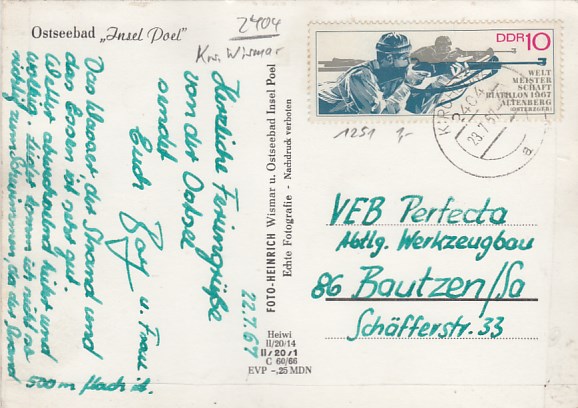 Ostseebad „Insel Poel"
2404
Krs. Wismar
Herzliche Feriengrüße
von der Ostsee
sendet
Euch
u. Frau
22.7.67
Das Wasser, der Strand und
das Essen ist sehr gut.
Wetter abwechselnd heiter und
wolkig. Leider komm ich nicht so
richtig zum Schwimmen, da der Strand
500m flach ist.
FOTO-HEINRICH Wismar u. Ostseebad Insel Poel
Echte Fotografie - Nachdruck verboten
Heiwi
II/20/14
II/20/1
C 60/66
EVP -,25 MDN
DDR 10
WELT
MEISTER
SCHAFT
BIATHLON 1967
ALTENBERG
(OSTERZGEB.)
2404
23.7.67
a
1251 1,-
VEB Perfecta
Abtlg. Werkzeugbau
86 Bautzen/Sa
Schäfferstr. 33